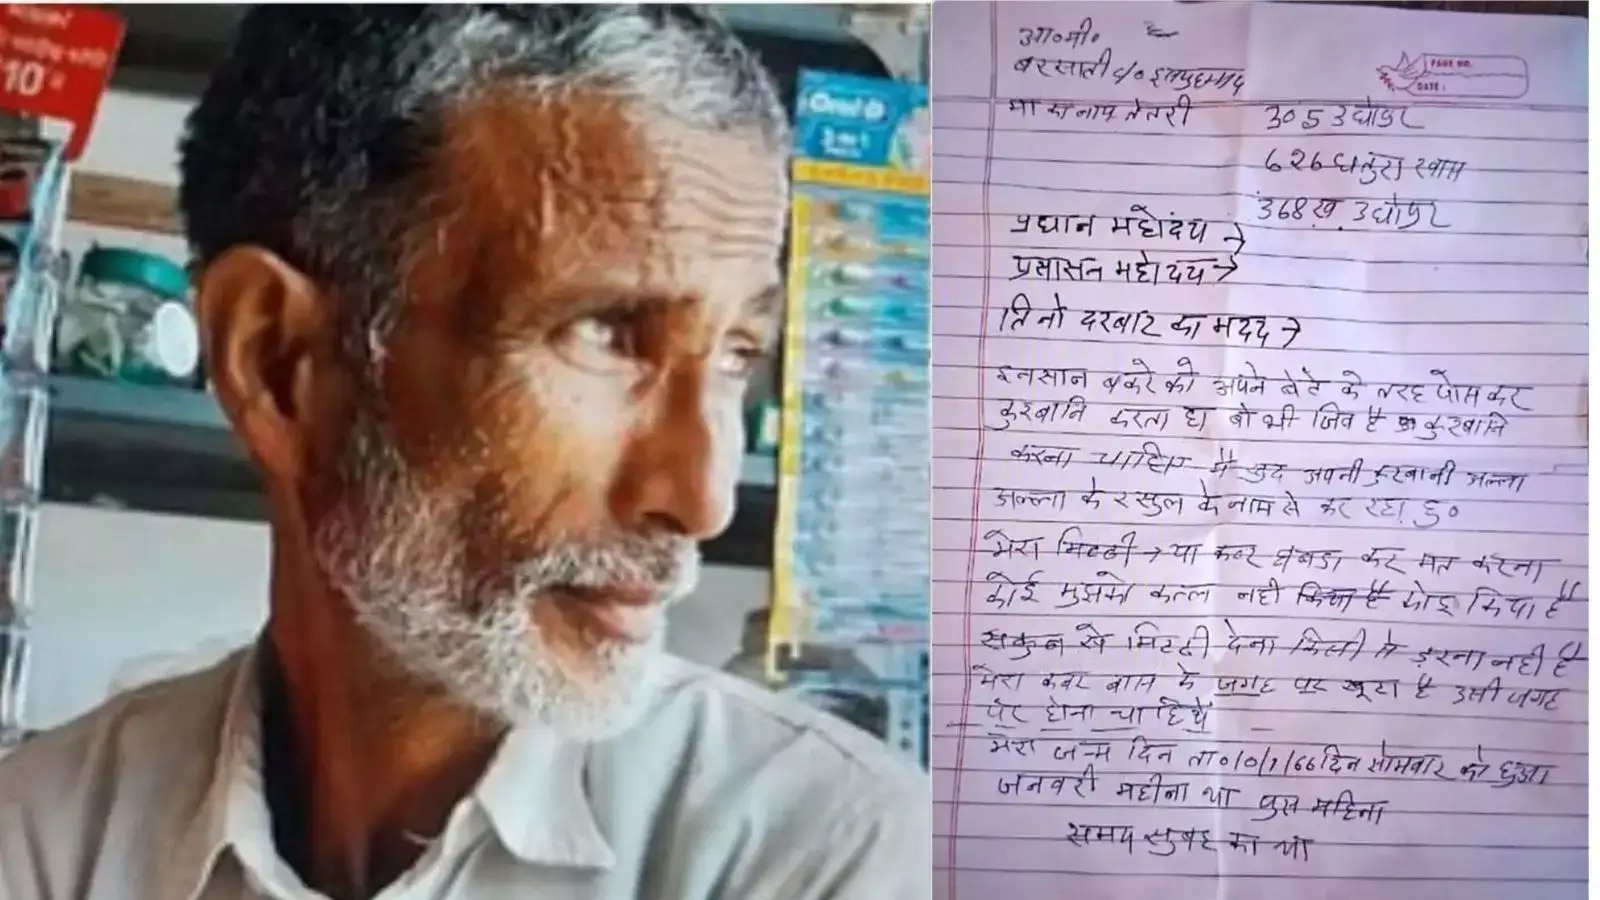 10
Oral B
आ०मी०
बरसाती
मा का नाम तेतरी
305 उधोपुर
626 धतुरा खास
368 ख. उधोपुर
PAGE NO.
DATE:
प्रधान महोदय →
प्रसासन महोदय →
तिनो दरबार का मदद →
इनसान बकरे को अपने बेटे के तरह पोस कर
कुरबानि करता हा बो भी जिव है कुरबानि
करना चाहिए मै खुद अपनी कुरबानी अल्ला
अल्ला के रसुल के नाम से कर रहा हु०
मेरा मिटटी → या कबर घबडा कर मत करना
कोई मुझको कत्ल नही किया है
सकुन से मिटटी देना किसी से डरना नही है
मेरा कबर बास के जगह पर खूटा है उसी जगह
पर होना चाहिये
मेरा जन्म दिन दिन सोमवार को हुआ
जनवरी महीना था पुस महिना
समय सुबह का था